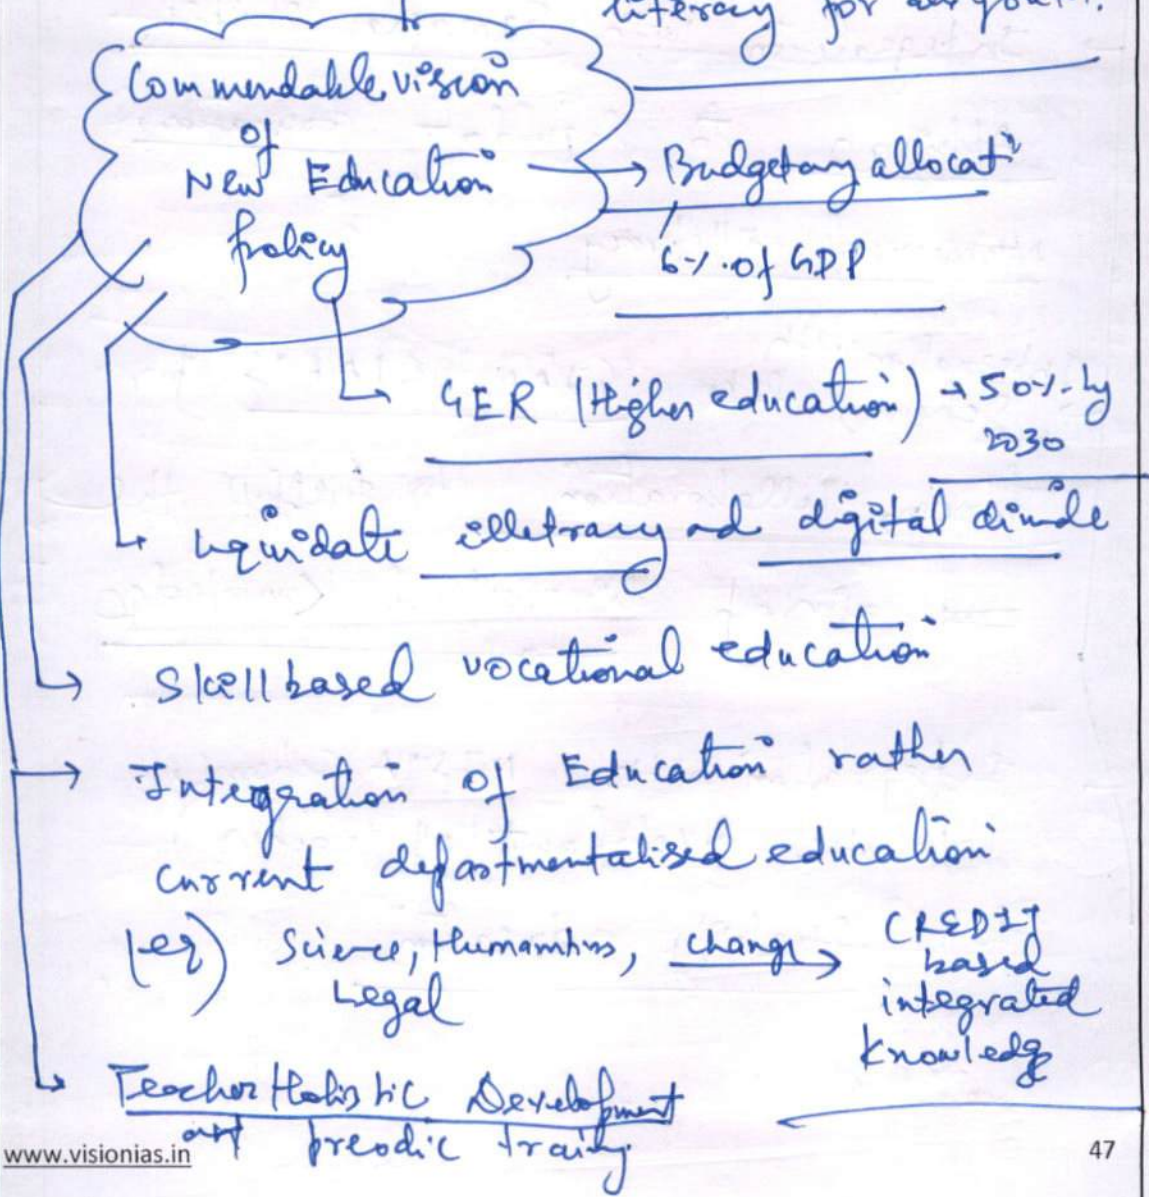 literacy for
Commendable vision
of
New Education
policy
→ Budgetary allocatⁿ
6%. of GDP
GER (Higher education) → 50%. by
2030
Liquidate illetracy and digital divide
Skill based vocational education
Integration of Education rather
current departmentalised education
(eg) Science, Humanities, change → CREDIT
Legal
based
integrated
knowledge
Teacher Holistic Development
and preodic traing
www.visionias.in
47